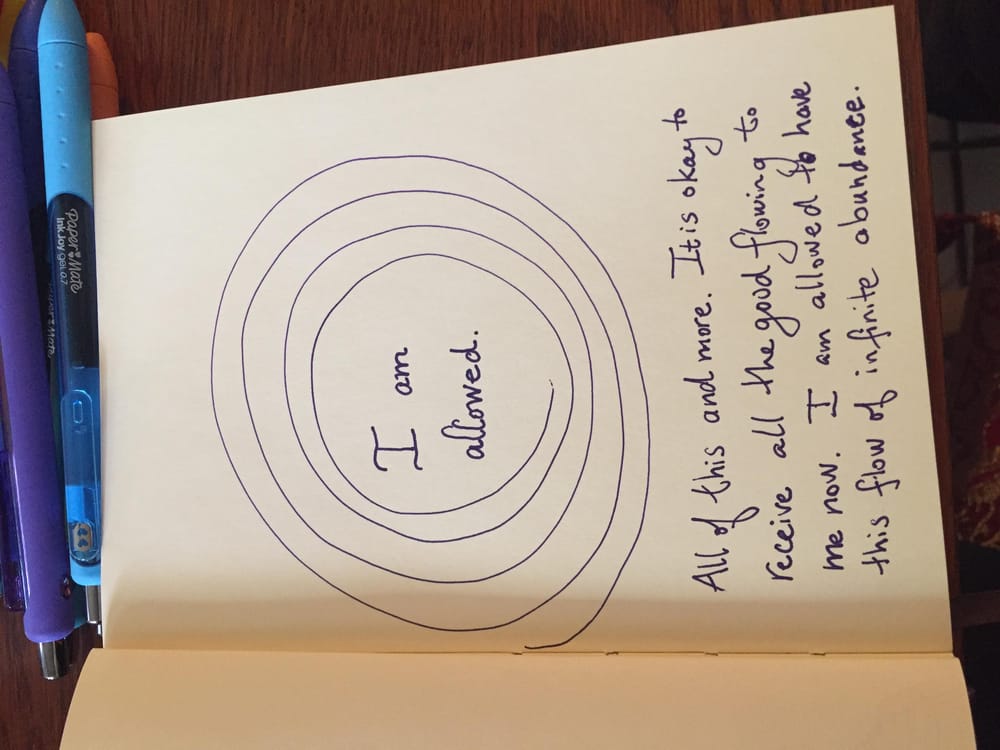 I am
allowed.
All of this and more. It is okay to
receive all the good flowing to
me now. I am allowed to have
this flow of infinite abundance.
Paper Mate
InkJoy gel 0.7